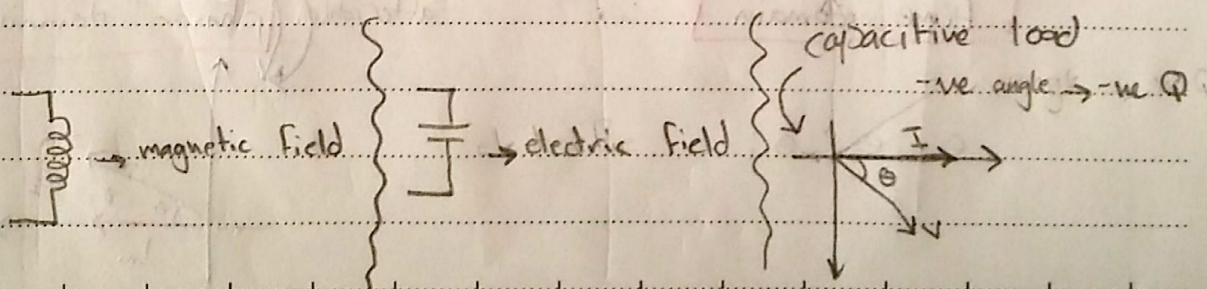 → magnetic field
→ electric field
capacitive load
-ve angle → -ve Q
I
θ
V